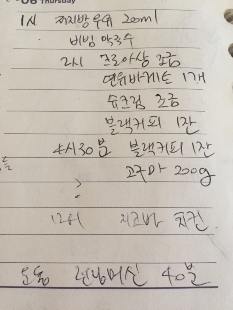 06 Thursday
1시 저지방우유 200ml
비빔 막국수
2시 크로아상 조금
연유바게트 1개
슈크림 조금
블랙커피 1잔
4시30분 블랙커피 1잔
고구마 200g
12시 지코바 치킨
운동 런닝머신 40분